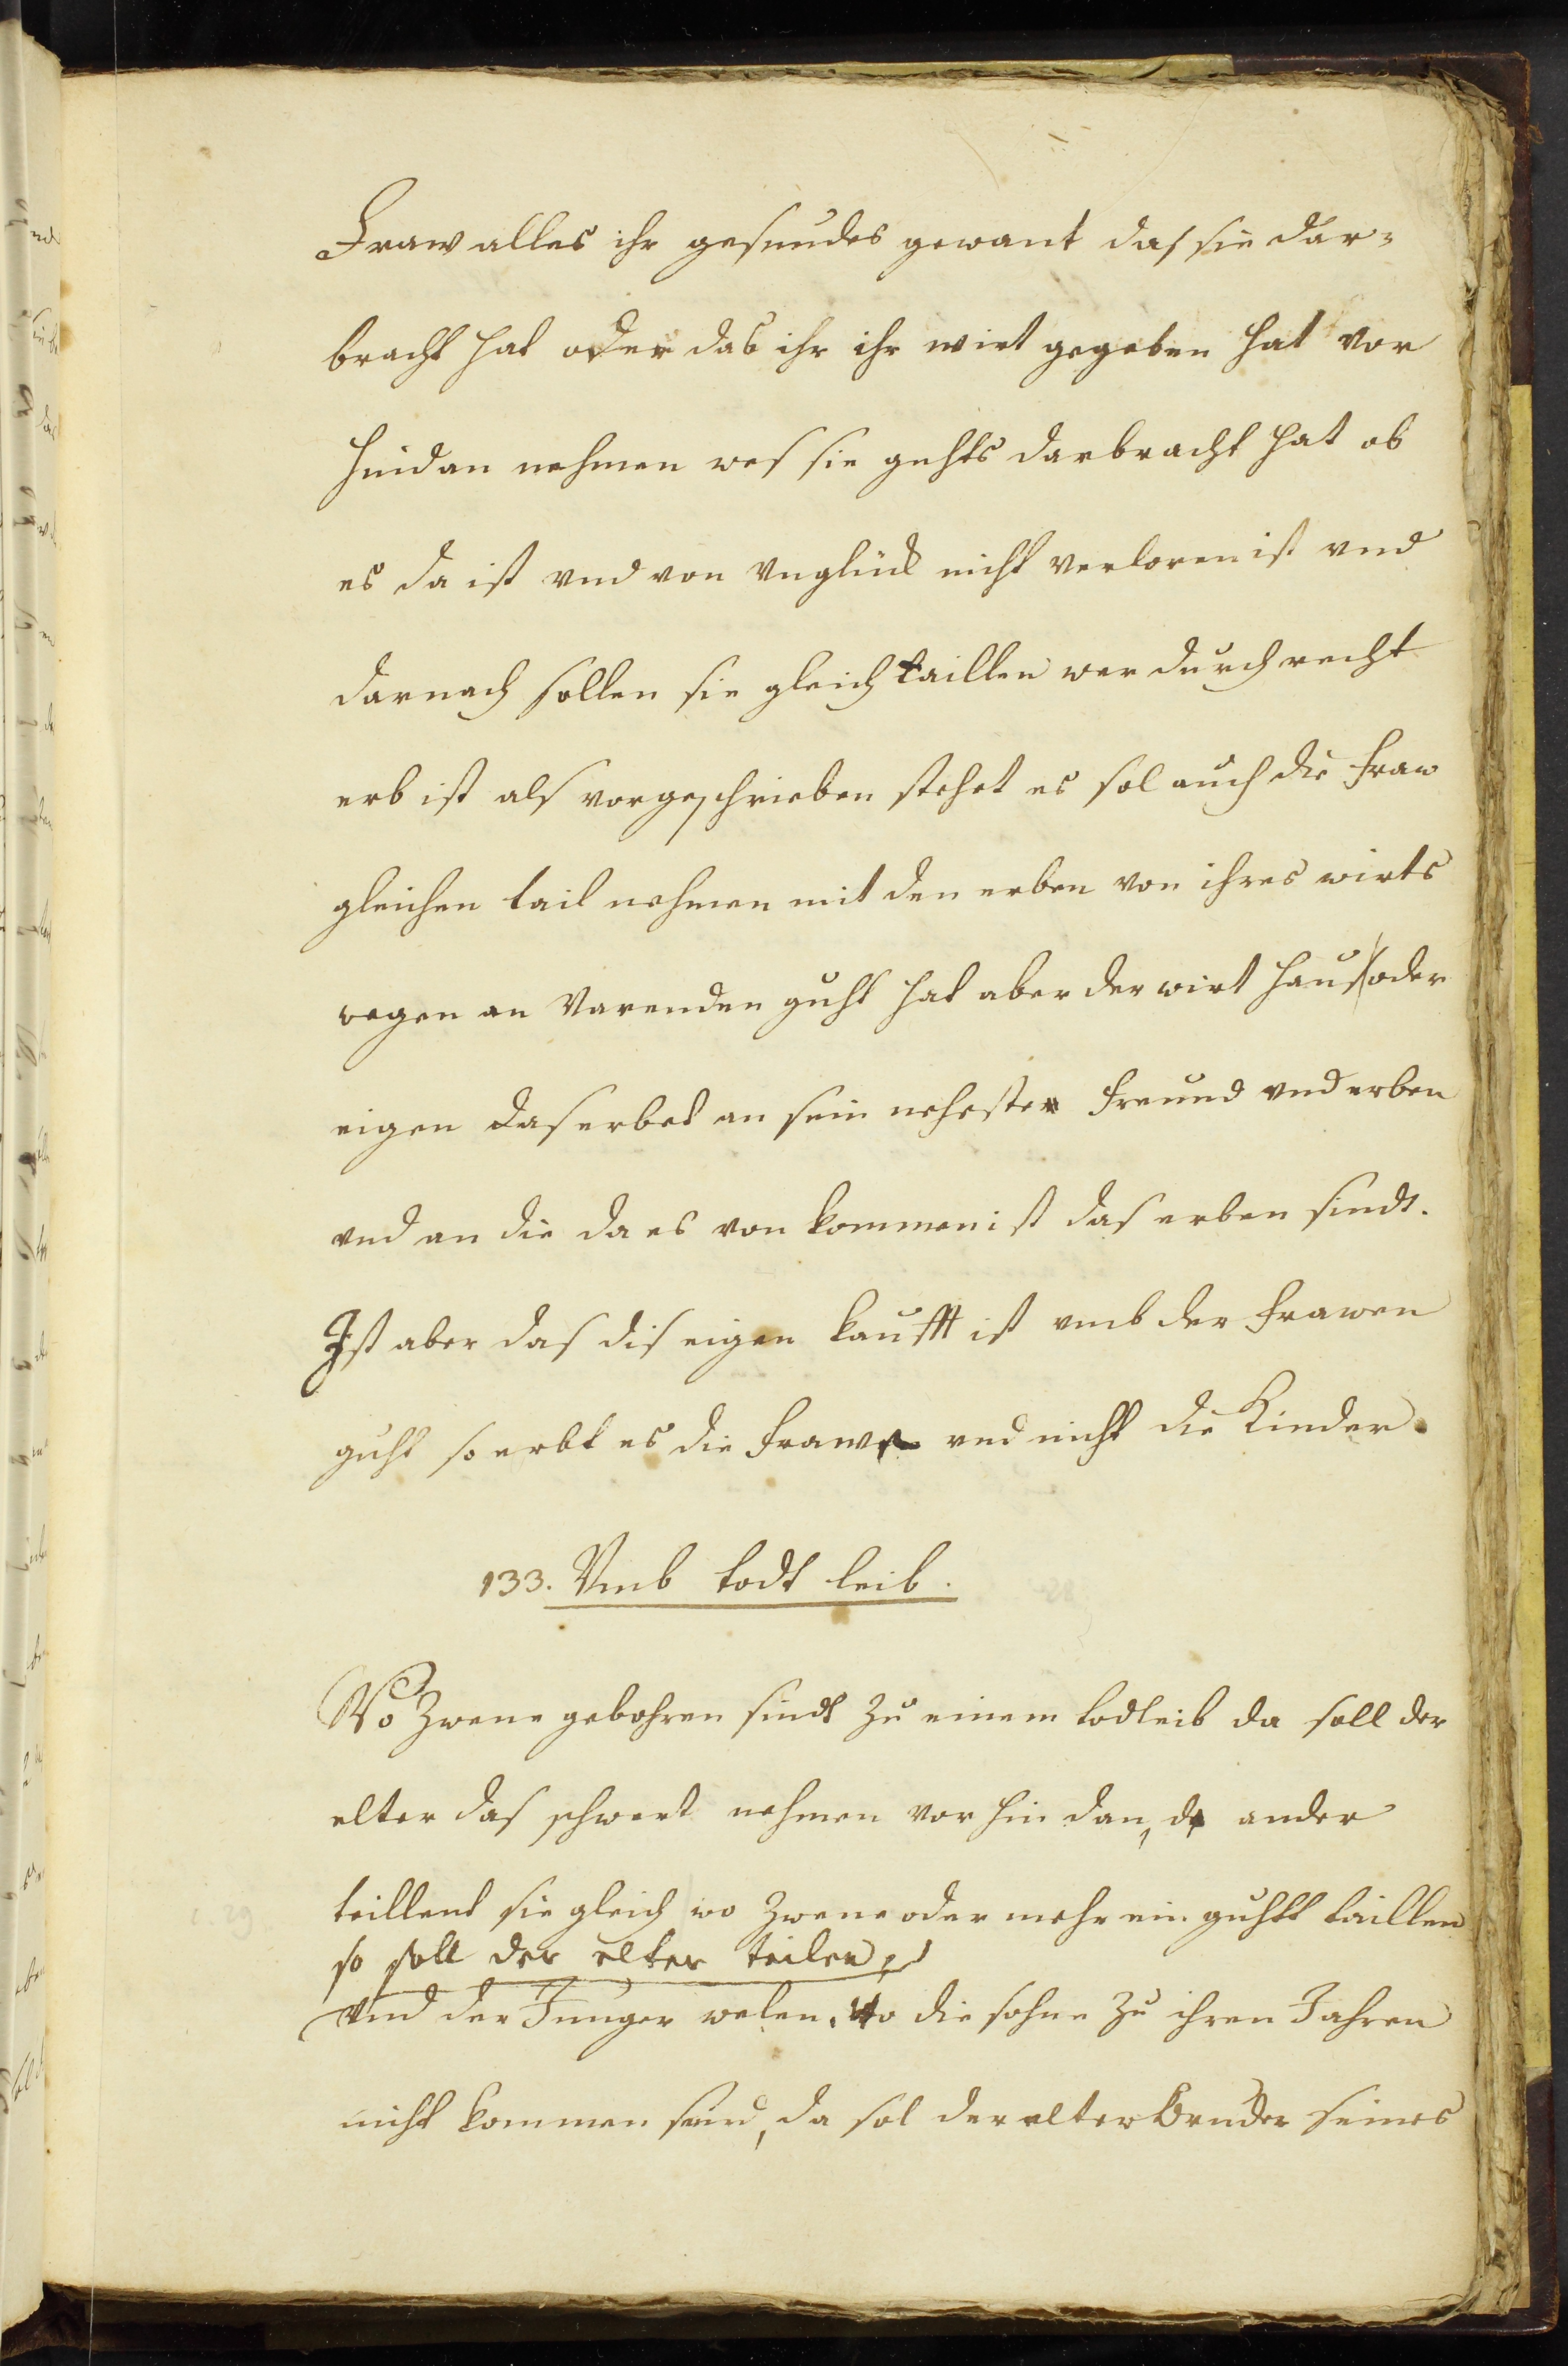 Fraw alles ihr gesundes gewant das sie dar=
bracht hat oder das ihr ihr wirt gegeben hat vor
hindan nehmen wes sie guhts darbracht hat ob
es da ist vnd von vnglück nicht verloren ist vnd
darnach sollen sie gleich taillen wer durch recht
erb ist als vorgeschrieben stehet es sol auch die fraw
gleichen tail nehmen mit den erben von ihres wirts
wegen an Varenden guht hat aber der wirt haus oder
eigen das erbet an sein nehesten freund vnd erben
vnd an die da es von kommen ist das erben sindt.
Ist aber das dis eigen kaufft ist vmb der frawen
guht so erbt es die fraw vnd nicht die Kinder.
133. Vmb todt leib.
Wo Zwene gebohren sindt Zu einem todleib da soll der
elter das schwert nehmen vor hin dan, ds ander
teillent sie gleich wo Zwene oder mehr ein guhtt taillen
so soll der elter teilen,
vnd der Junger welen. Wo die sohne Zu ihren Jahren
nicht kommen seind, da sol der elter bruder seines
c. 29